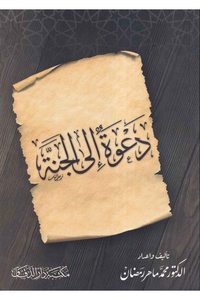 دعوة إلى الجنة
تأليف وإعداد
الدكتور محمد ماهر رمضان
مكتبة دار الدقاق